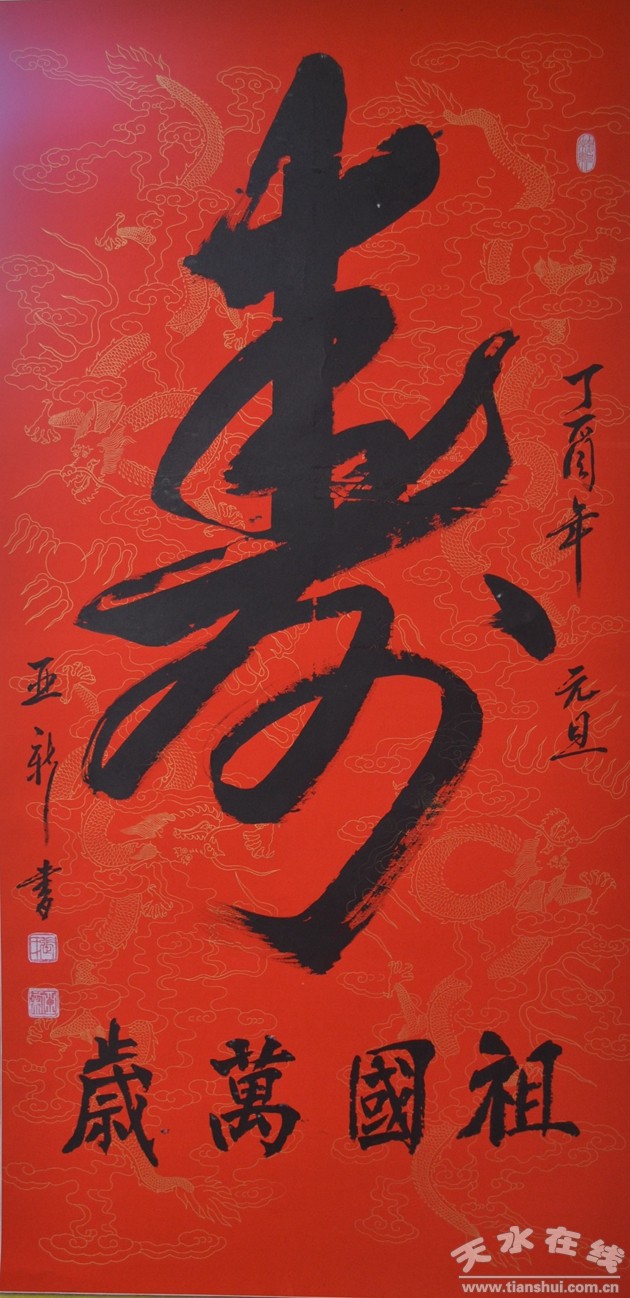 丁酉年 元旦
壽
祖國萬歲
亚新书
天水在线
www.tianshui.com.cn